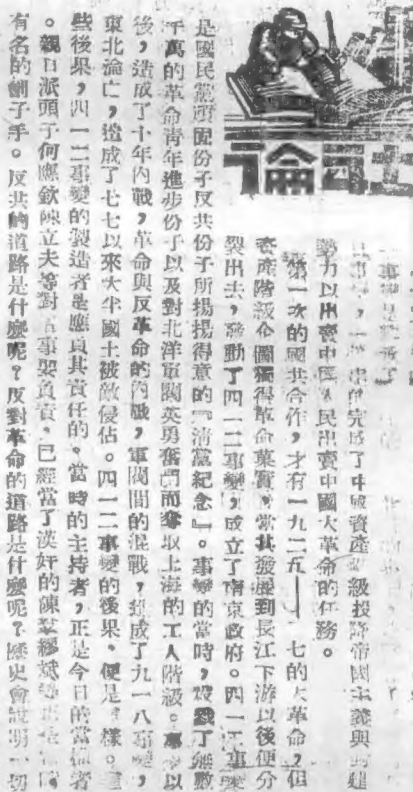 社論
完成了中國資產階級投降帝國主義與封建
勢力以出賣中國人民出賣中國大革命的任務。
第一次的國共合作，才有一九二五——七的大革命，但
資產階級企圖獨得革命菓實，當其發展到長江下游以後便分
裂出去，發動了四一二事變，成立了南京政府。四一二事變
是國民黨頑固份子反共份子所揚揚得意的『清黨紀念』。事變的當時，殺戮了無數
千萬的革命青年進步份子以及對北洋軍閥英勇奮鬥而奪取上海的工人階級。事變以
後，造成了十年內戰，革命與反革命的內戰，軍閥間的混戰，造成了九一八事變，
東北淪亡，造成了七七以來大半國土被敵侵佔。四一二事變的後果，便是這樣。這
些後果，四一二事變的製造者是應負其責任的。當時的主持者，正是今日的當權者
。親日派頭子何應欽陳立夫等對事要負責，已經當了漢奸的陳羣繆斌等
有名的劊子手。反共的道路是什麼呢？反對革命的道路是什麼呢？歷史會說明一切